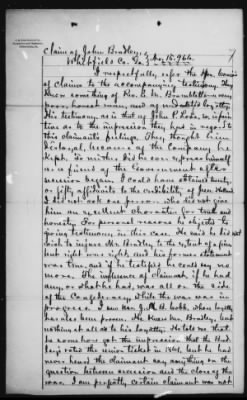 Claim of John Bradley,
Whitfield Co. Ga. } No. 15.966. 7/
I respectfully refer the Hon. Comrs
of Claims to the accompanying testimony. They
know something of Rev. E. M. a very
poor, honest man, and of undoubted loyalty.
His testimony as is that of John P. Love, is
as to the impression they had in regard to
this claimant's feelings. They thought him
disloyal, because of the company he
kept. So neither did he ever express himself
as a friend of the Government after
secession began. I could have obtained twenty
or fifty affidavits to the credibility of
I did not ask one person who did not give
him an excellent character for truth and
honesty. For personal reasons he objected to
giving testimony in this case. He said he did not
wish to injure Mr. Bradley to the extent of a pin
but right was right and his former statement
was true, and if he testified he could say no
more. The influence of claimant, if he had
any, or what he had, was all on the side
of the Confederacy while the war was in
progress. I saw Hon. J. A. R. whose loyalty
has also been proven. He knows Mr. Bradley, but
nothing at all as to his loyalty. He told me that
he somehow got the impression that the
voted the union ticket in 1861, but he had
never heard the claimant say anything on the
question between secession and the close of the
war. I am perfectly certain claimant was not